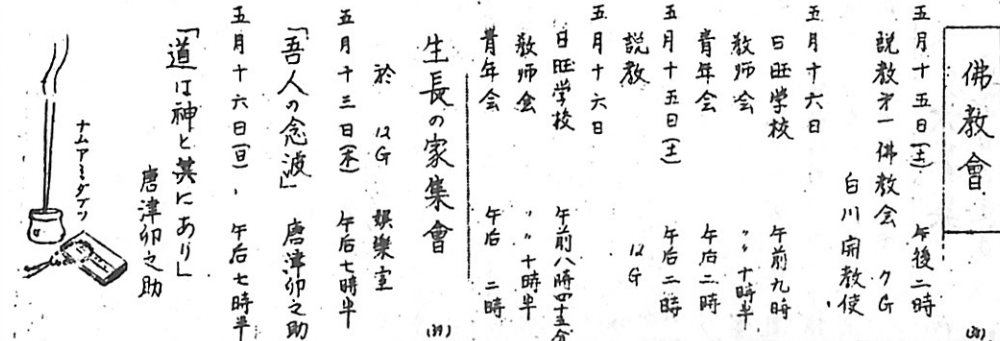 佛教會
五月十五日(土) 午後二時
説教第一佛教会 クG
白川開教使
五月十六日
日旺学校 午前九時
敎师会 〃〃十時半
靑年会 午后二時
五月十五日(土) 午后二時
説教 12G
五月十六日
日旺学校 午前八時四十五分
敎师会 〃〃十時半
靑年会 午后二時
生長の家集會
於 12G 娯樂室
五月十三日(木) 午后七時半
「吾人の念波」 唐津卯之助
五月十六日(日)、午后七時半
「道は神と共にあり」
唐津卯之助
ナムアミダブツ